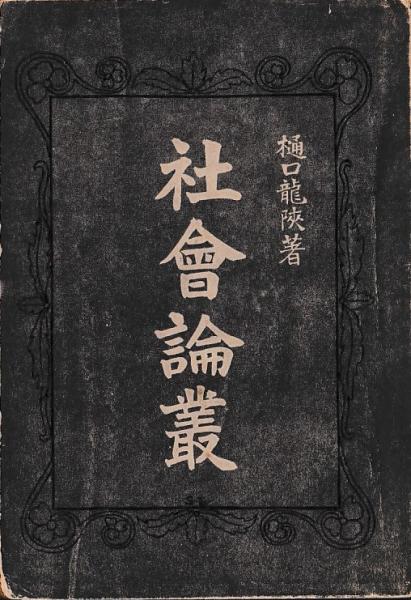 樋口龍陝著
社會論叢